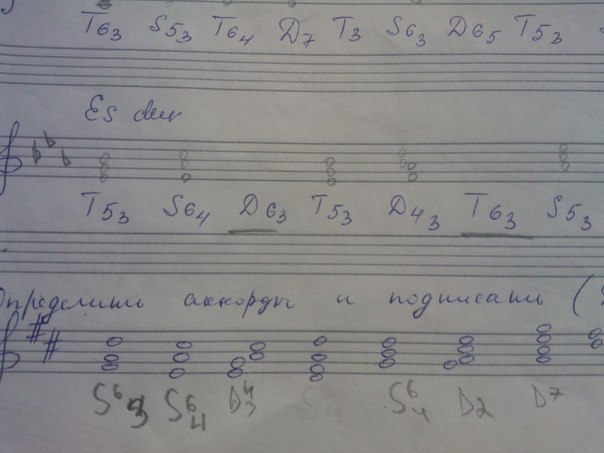 T63 S53 T64 D7 T3 S63 D65 T53
Es dur
T53 S64 D63 T53 D43 T63 S53
Определить аккорды и подписать (
S63 S64 D43 S64 D2 D7